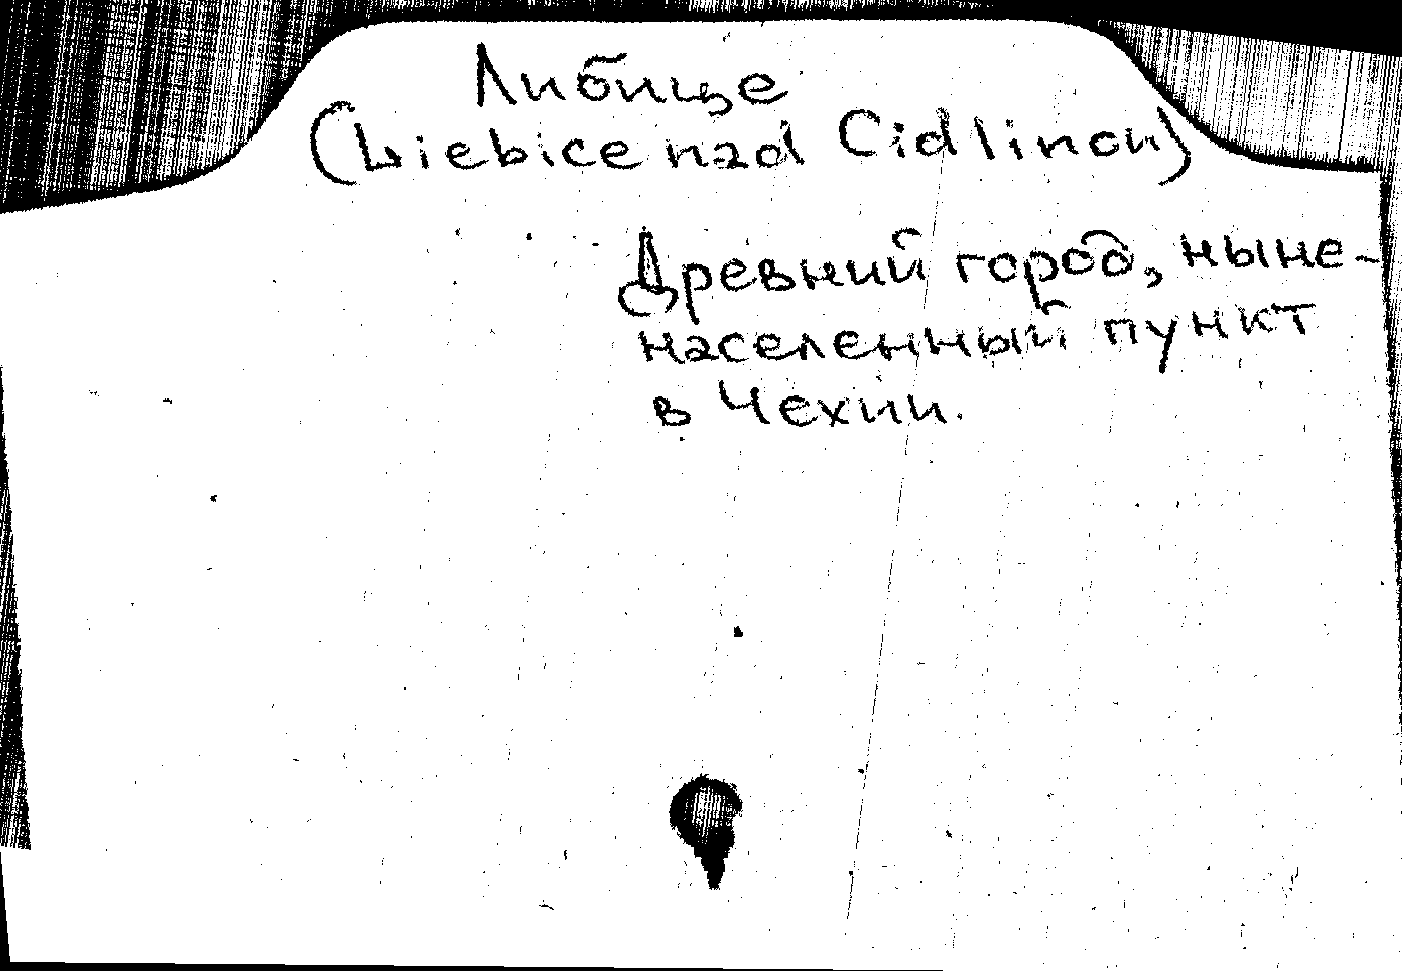 Либице
(Liebice nad Cidlinou)
Древний город, ныне -
населенный пункт
в Чехии.